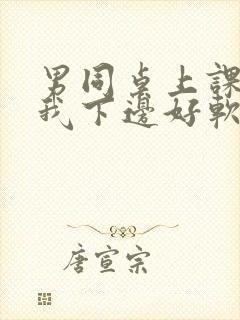 男同桌上課
我下邊好軟
唐宣宗